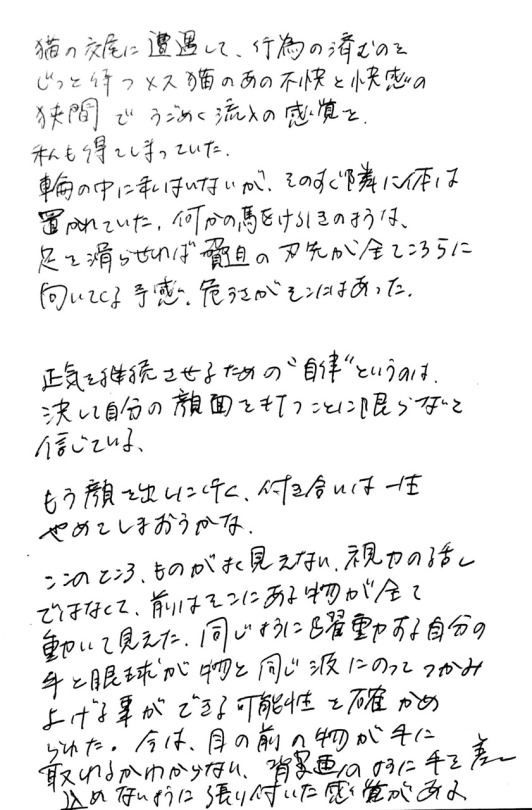 猫の交尾に遭遇して、行為の済むのを
じっと待つメス猫のあの不快と快感の
狭間でうごめく流入の感覚を、
私も得てしまっていた。
輪の中に私はいないが、そのすぐ隣に体は
置かれていた。何かの馬をけるしきのような、
足を滑らせれば脅迫の刃先が全てこちらに
向いてくる予感、危うさがそこにはあった。
正気を継続させるための“自律”というのは、
決して自分の顔面を打つことに限らないと
信じている、
もう顔を出しに行く、付き合いは一性
やめてしまおうかな。
ここのところ、ものがよく見えない、視力の話し
ではなくて、前はそこにある物が全て
動いて見えた。同じように躍動する自分の
手と眼球が物と同じ波にのってつかみ
上げる事ができる可能性を確かめ
られた。今は、目の前の物が手に
取れるかわからない、背景画のように手を差し
込めないように張り付いた感覚がある